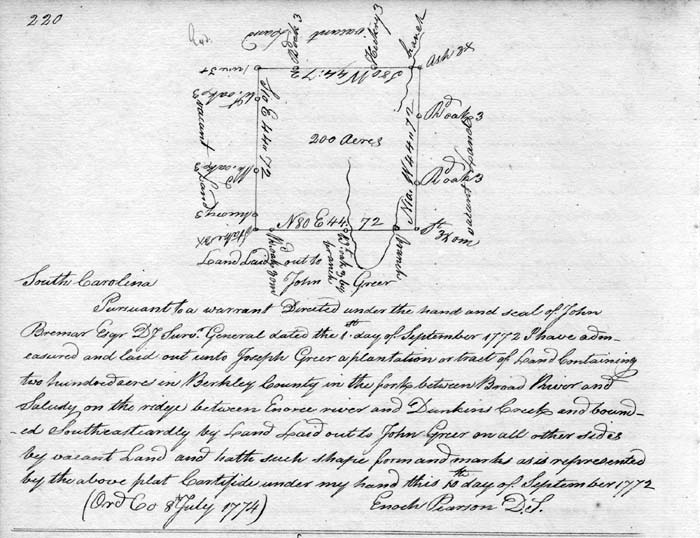 220
vacant Land
Rd oak 3
Hickory 3
branch
Ash 3x
S80W 44:72
W. oak 3
vacant Land
S10 E 44:72
200 Acres
N10 W 44:72
Rd oak 3
Rd oak 3
vacant Land
Stake 3x
N80 E 44 72
branch
Land Laid out to
John Greer
South Carolina
Pursuant to a warrant Directed under the hand and seal of John
Bremar Esqr D S Survr. General dated the 1st day of September 1772 I have adm-
easured and laid out unto Joseph Greer a plantation or tract of Land Containing
two hundred acres in Berkley County in the fork between Broad River and
Saludy on the ridge between Enoree river and Dunkins Creek and bound-
-ed Southeastardly by Land Laid out to John Greer on all other sides
by vacant Land and hath such shape form and marks as is represented
by the above plat Cartifide under my hand this 10th day of September 1772
(Ord Co 8th July 1774) Enoch Pearson D.S.